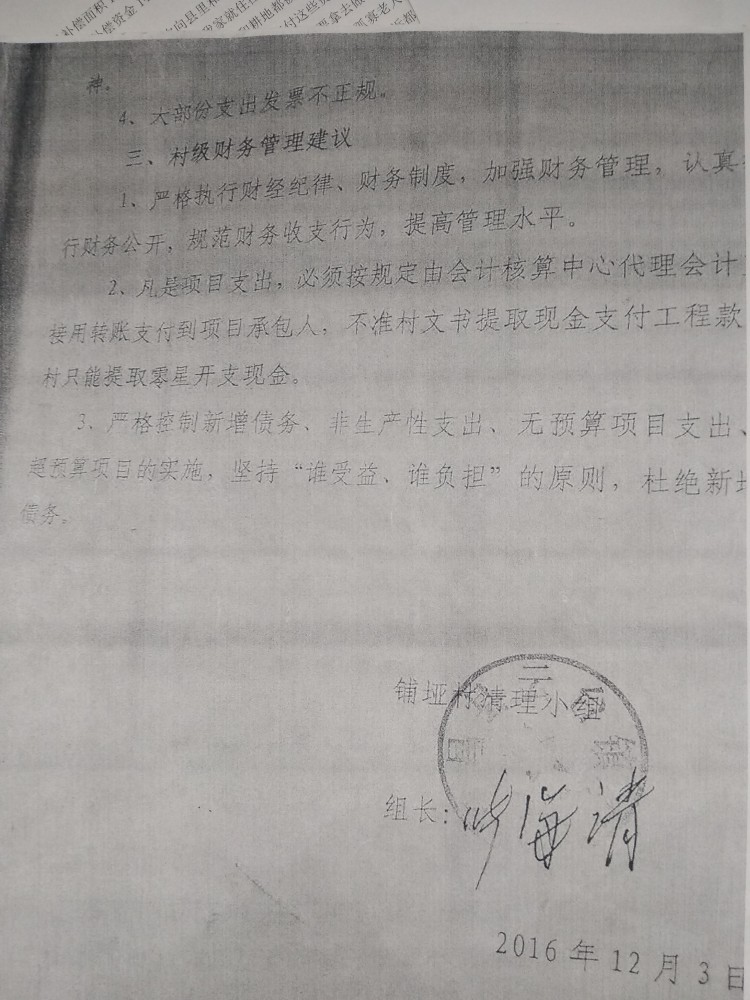 补偿面积
神。
4、大部份支出发票不正规。
三、村级财务管理建议
1、严格执行财经纪律、财务制度，加强财务管理，认真
行财务公开，规范财务收支行为，提高管理水平。
2、凡是项目支出，必须按规定由会计核算中心代理会计
接用转账支付到项目承包人，不准村文书提取现金支付工程款
村只能提取零星开支现金。
3、严格控制新增债务、非生产性支出、无预算项目支出、
超预算项目的实施，坚持“谁受益、谁负担”的原则，杜绝新增
债务。
铺垭村清理小组
组长：叶海清
2016年12月3日